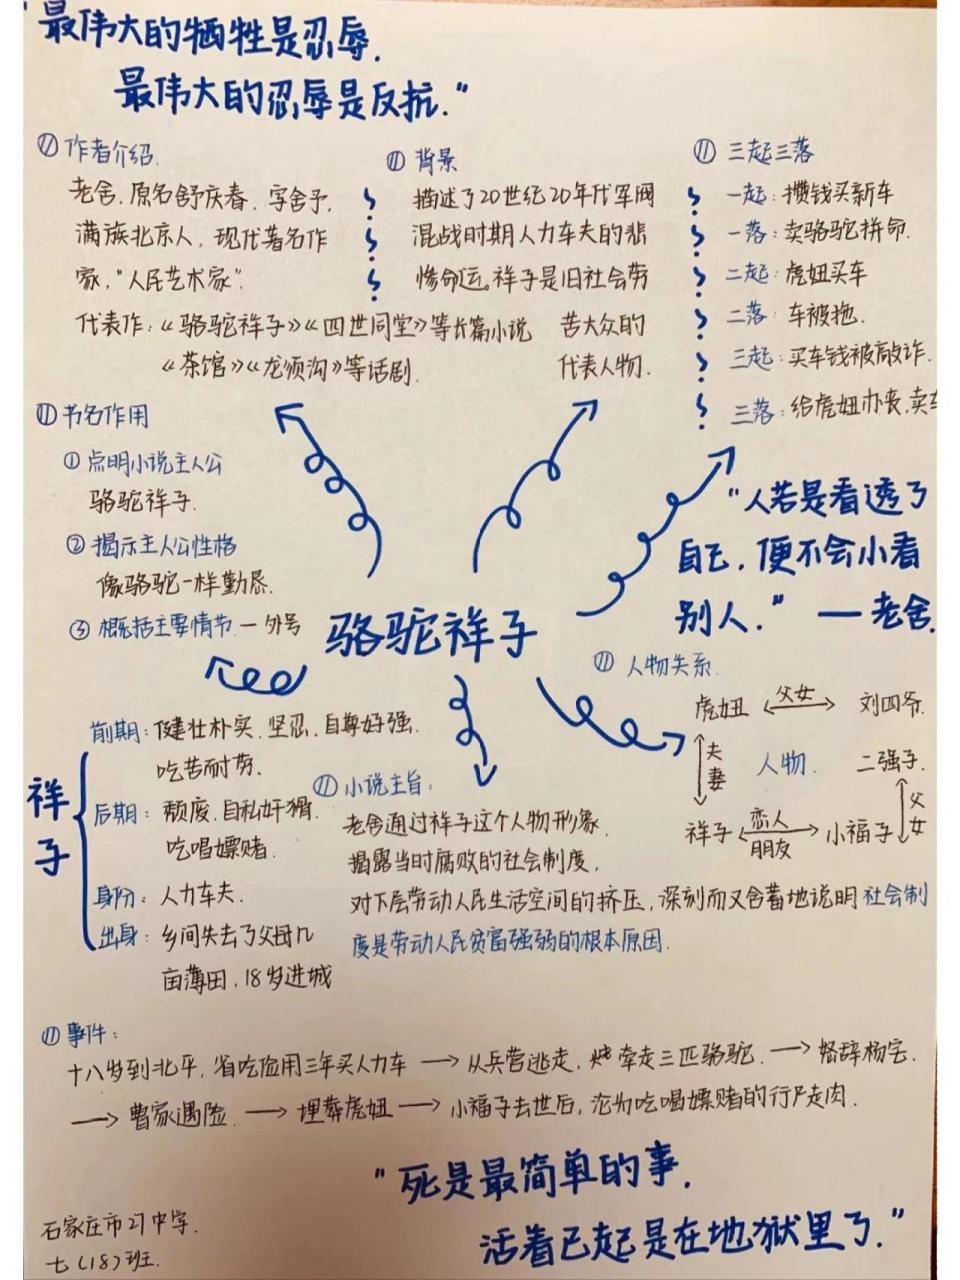 "最伟大的牺牲是忍辱.
最伟大的忍辱是反抗."
作者介绍.
老舍,原名舒庆春.字舍予,
满族北京人,现代著名作
家,"人民艺术家".
代表作:《骆驼祥子》《四世同堂》等长篇小说
《茶馆》《龙须沟》等话剧.
背景
描述了20世纪20年代军阀
混战时期人力车夫的悲
惨命运。祥子是旧社会劳
苦大众的
代表人物.
三起三落
一起:攒钱买新车
一落:卖骆驼拼命.
二起:虎妞买车
二落:车被拖.
三起:买车钱被敲诈.
三落:给虎妞办丧,卖车
书名作用
①点明小说主人公
骆驼祥子.
②揭示主人公性格
像骆驼一样勤恳.
③概括主要情节一外号
"人若是看透了
自己,便不会小看
别人." —老舍.
骆驼祥子
人物关系.
虎妞 父女 刘四爷.
夫妻 人物. 二强子.
父女
祥子 恋人 小福子
朋友
祥子
前期:健壮朴实.坚忍.自尊好强.
吃苦耐劳.
后期:颓废.自私奸猾.
吃唱嫖赌.
身份:人力车夫.
出身:乡间失去了父母几
亩薄田.18岁进城
小说主旨:
老舍通过祥子这个人物形象,
揭露当时腐败的社会制度.
对下层劳动人民生活空间的挤压,深刻而又含蓄地说明社会制
度是劳动人民贫富强弱的根本原因.
事件:
十八岁到北平,省吃俭用三年买人力车 → 从兵营逃走, 牵走三匹骆驼. → 怒辞杨宅.
→ 曹家遇险. → 埋葬虎妞 → 小福子去世后,沦为吃喝嫖赌的行尸走肉.
"死是最简单的事.
活着已起是在地狱里了."
石家庄市27中学.
七(18)班.